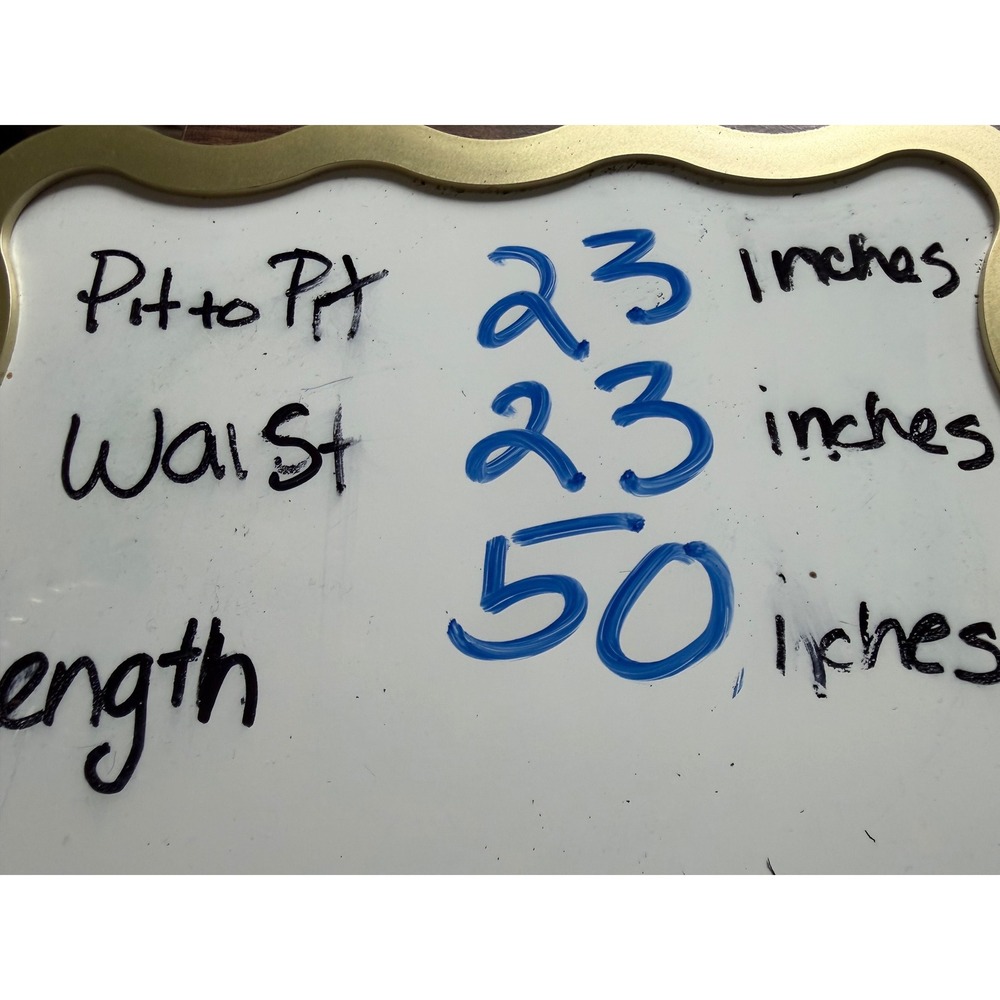 Pit to Pit 23 inches
Waist 23 inches
ength 50 inches